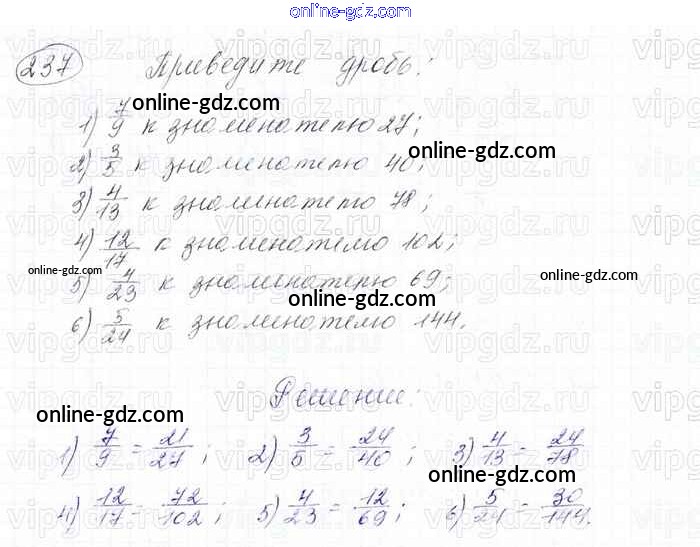 online-gdz.com
237 Приведите дробь:
online-gdz.com
1) 7/9 к знаменателю 27;
online-gdz.com
2) 3/5 к знаменателю 40;
3) 4/13 к знаменателю 78;
4) 12/17 к знаменателю 102;
online-gdz.com
online-gdz.com
5) 4/23 к знаменателю 69;
online-gdz.com
6) 5/24 к знаменателю 144.
Решение:
online-gdz.com
1) 7/9 = 21/27; 2) 3/5 = 24/40; 3) 4/13 = 24/78
online-gdz.com
4) 12/17 = 72/102; 5) 4/23 = 12/69; 6) 5/24 = 30/144.